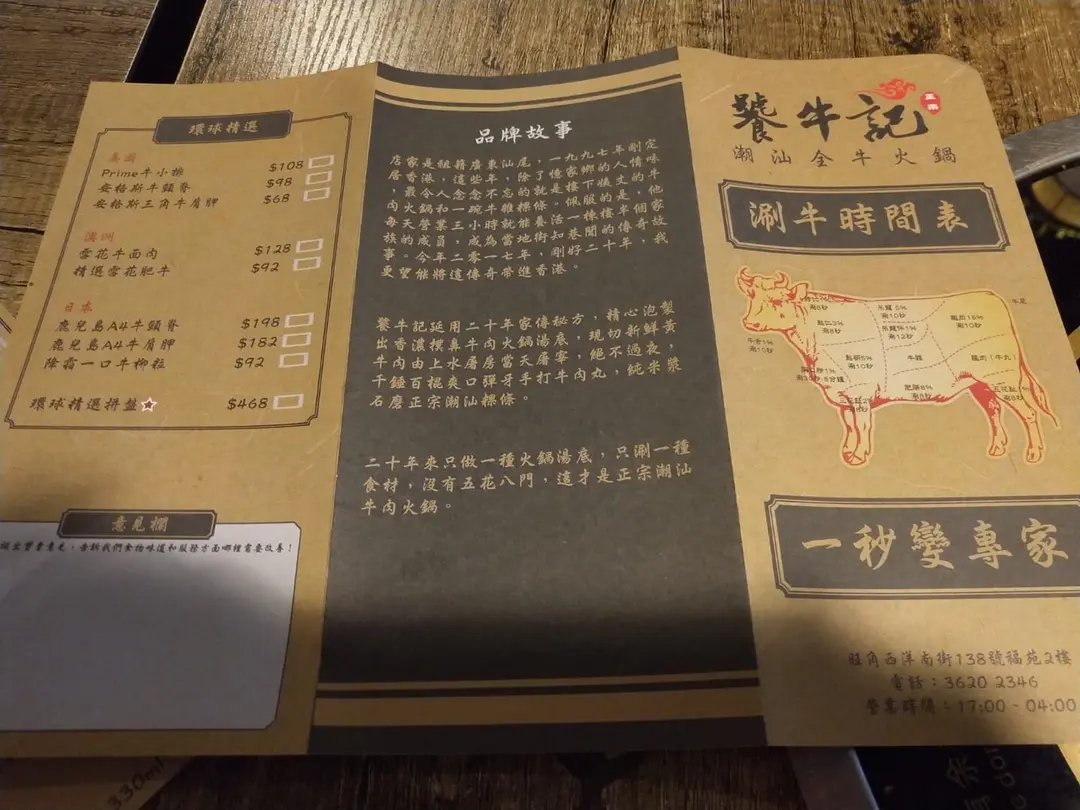 環球精選
美國
Prime牛小排 $108
安格斯牛頸脊 $98
安格斯三角牛肩胛 $68
澳洲
雪花牛面肉 $128
精選雪花肥牛 $92
日本
鹿兒島A4牛頸脊 $198
鹿兒島A4牛肩胛 $182
降霜一口牛柳粒 $92
環球精選拼盤 $468
意見欄
告訴我們食物味道和服務方面哪裡需要改善！
330ml
品牌故事
店家是祖籍廣東汕尾，一九九七年剛定
居香港，這些年，除了憶家鄉的人情味
，最令人念念不忘的就是樓下姨丈的牛
肉火鍋和一碗牛雜粿條。佩服的是，他
每天營業三小時就能養活一棟樓半個家
族的成員，成為當地街知巷聞的傳奇故
事。今年二零一七年，剛好二十年，我
更望能將這傳奇帶進香港。
饕牛記延用二十年家傳秘方，精心泡製
出香濃撲鼻牛肉火鍋湯底，現切新鮮黃
牛肉由上水屠房當天屠宰，絕不過夜，
千錘百棍爽口彈牙手打牛肉丸，純米漿
石磨正宗潮汕粿條。
二十年來只做一種火鍋湯底，只涮一種
食材，沒有五花八門，這才是正宗潮汕
牛肉火鍋。
饕牛記
正宗
潮汕全牛火鍋
涮牛時間表
牛尾
吊龍 5%
涮10秒
吊龍伴1%
涮12秒
涮8秒
牛舌1%
涮10秒
匙柄5%
涮10秒
牛雜
肥胼8%
涮8秒
涮10秒
(牛丸)
一秒變專家
旺角西洋南街138號福苑2樓
電話：3620 2346
營業時間：17:00 - 04:00